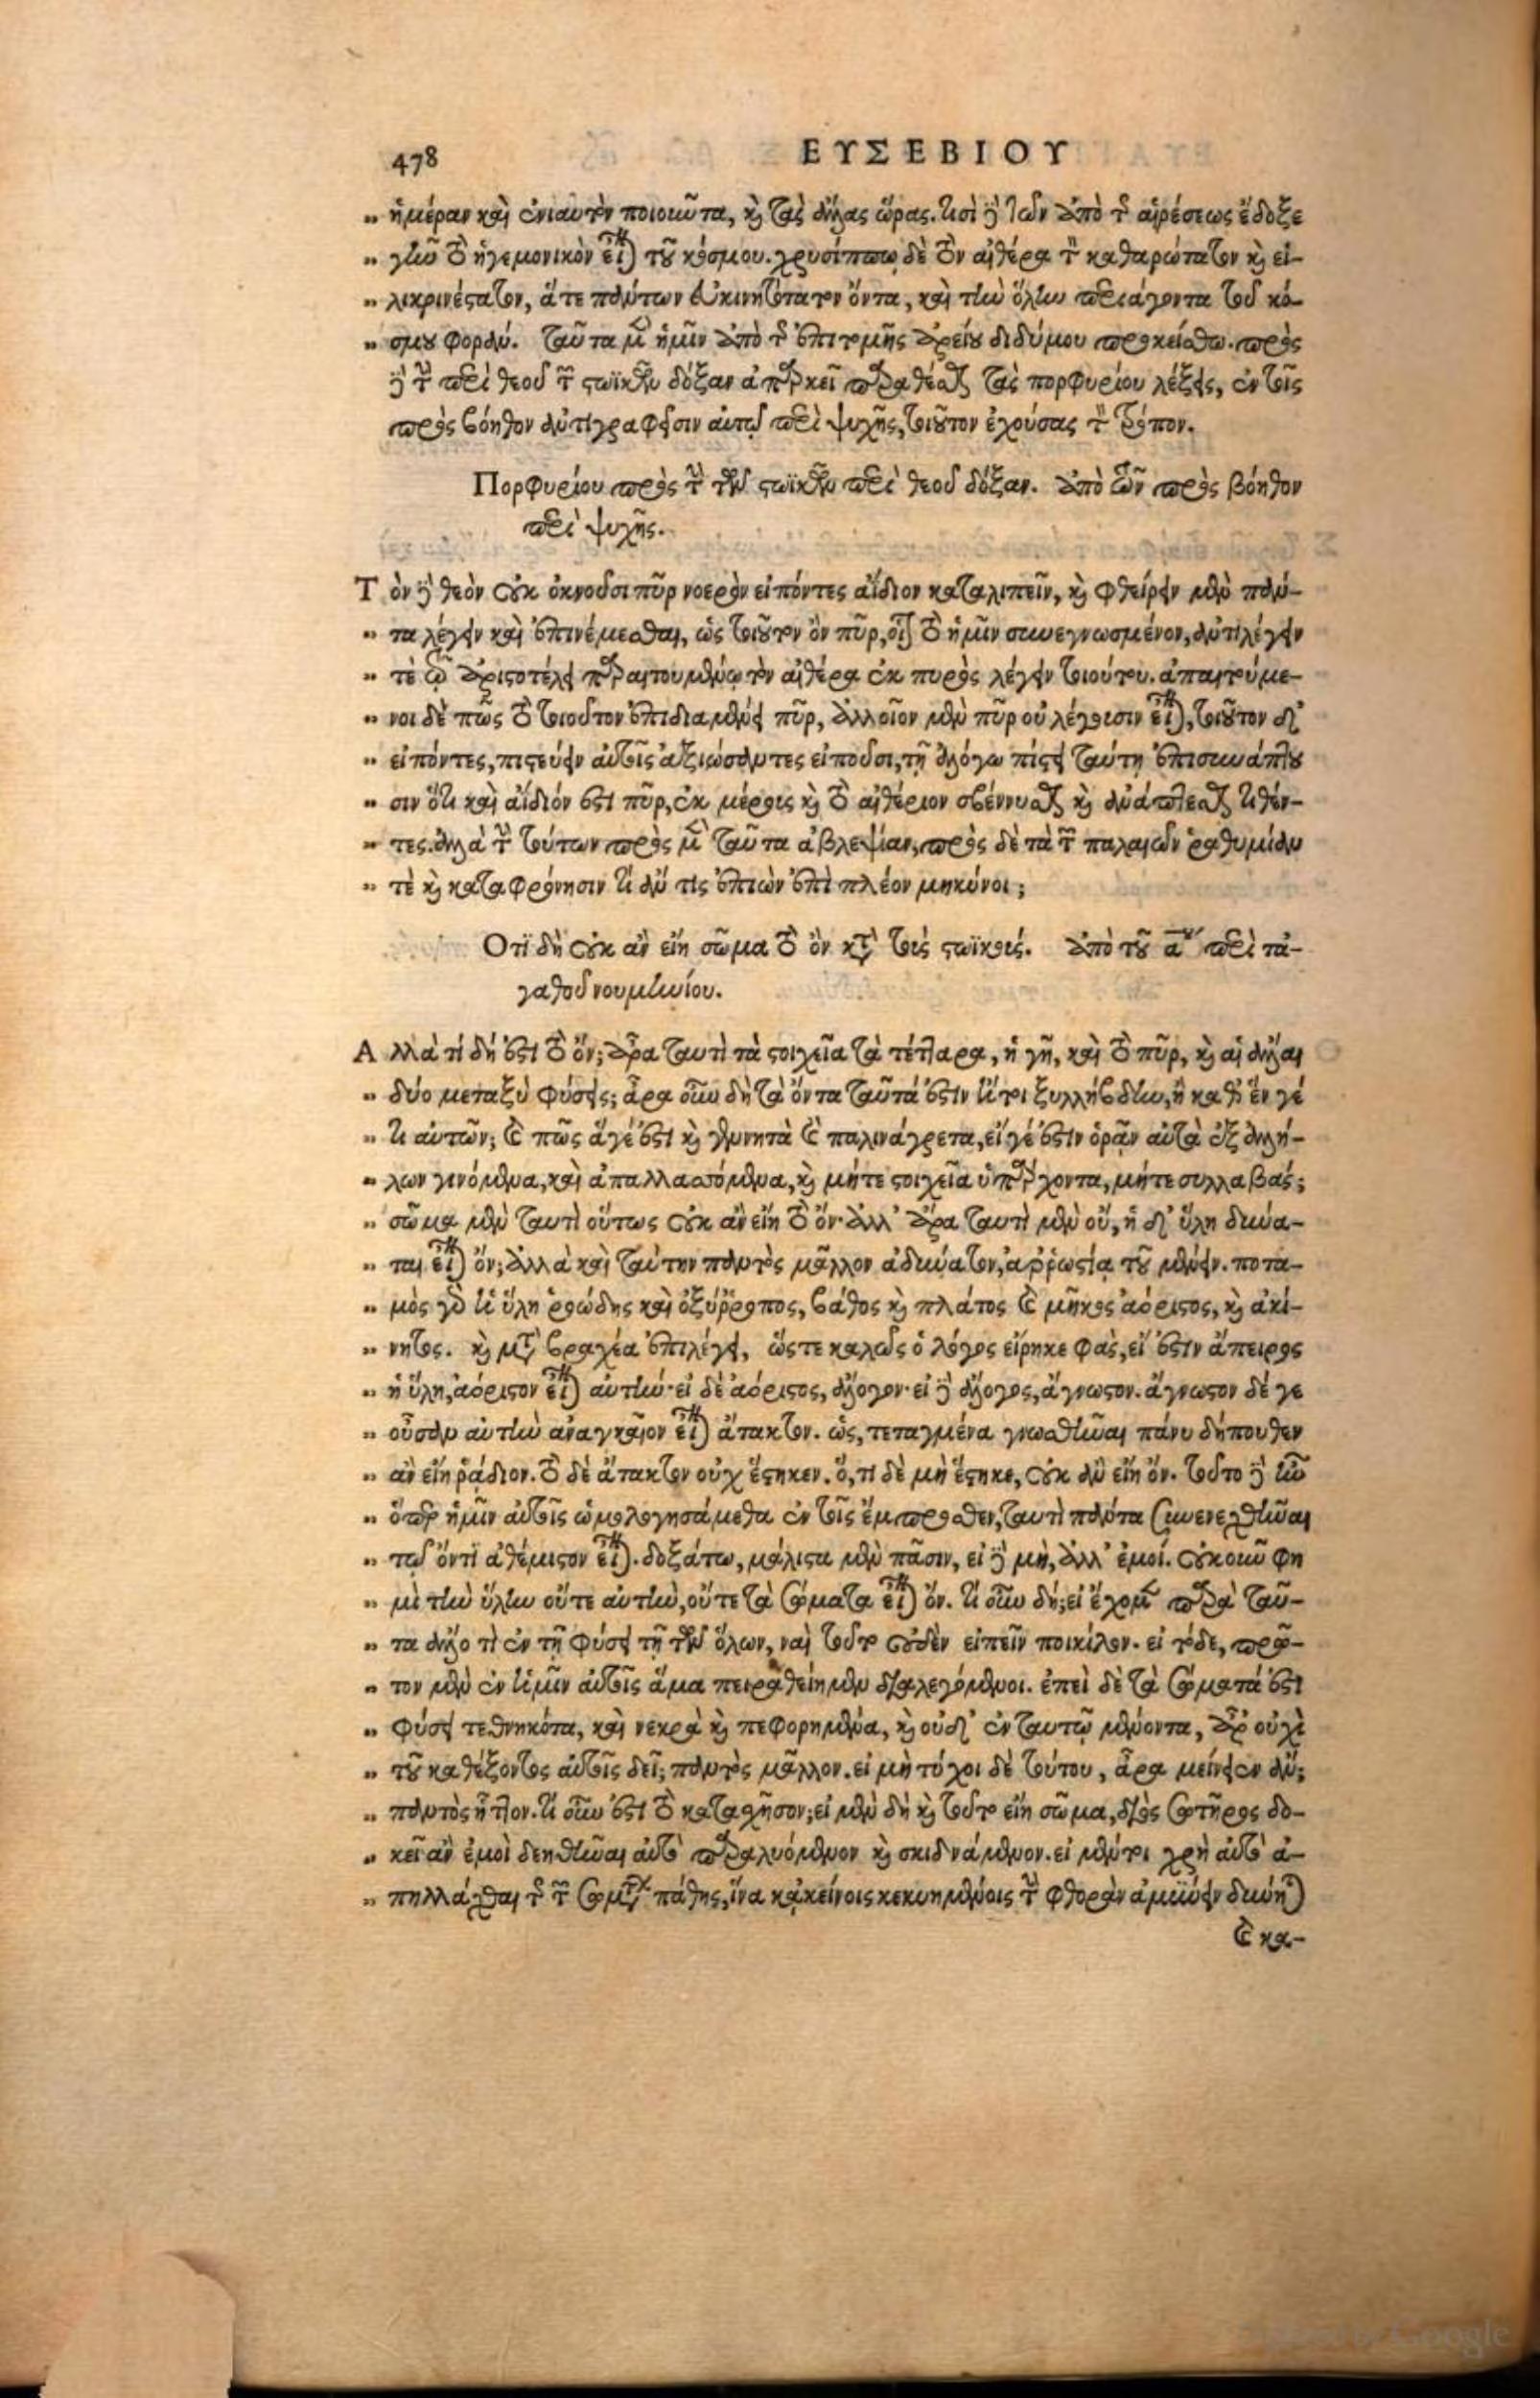 478 ΕΥΣΕΒΙΟΥ
" ἡμέραν καὶ ἐνιαυτὸν ποιοῦντα, καὶ τὰς ἄλλας ὥρας. τισὶ δὲ τῶν ἀπὸ τῆς αἱρέσεως ἔδοξε
" γῆν τὸ ἡγεμονικὸν εἶναι τοῦ κόσμου. χρυσίππῳ δὲ τὸν αἰθέρα τὸν καθαρώτατον καὶ εἰ-
" λικρινέστατον, ἅτε πάντων εὐκινητότατον ὄντα, καὶ τὴν ὅλην περιάγοντα τοῦ κό-
" σμου φοράν. ταῦτα μὲν ἡμῖν ἀπὸ τῆς ἐπιτομῆς ἀρείου διδύμου προκείσθω. πρὸς
δὲ τὴν περὶ θεοῦ τῶν στωϊκῶν δόξαν ἀπαρκεῖ παραθέσθαι τὰς πορφυρίου λέξεις, ἐν τοῖς
πρὸς βόηθον ἀντιγραφεῖσιν αὐτῷ περὶ ψυχῆς, τοῦτον ἐχούσας τὸν τρόπον.
Πορφυρίου πρὸς τὴν τῶν στωϊκῶν περὶ θεοῦ δόξαν. ἀπὸ τῶν πρὸς βόηθον
περὶ ψυχῆς.
Τὸν δὲ θεὸν οὐκ ὀκνοῦσι πῦρ νοερὸν εἰπόντες ἀΐδιον καταλιπεῖν, καὶ φθείρειν μὲν πάν-
" τα λέγειν καὶ ἐπινέμεσθαι, ὡς τοιοῦτον ὂν πῦρ, οἷον τὸ ἡμῖν συνεγνωσμένον, ἀντιλέγειν
" τὲ τῷ ἀριστοτέλει παραιτουμένῳ τὸν αἰθέρα ἐκ πυρὸς λέγειν τοιούτου. ἀπαιτούμε-
" νοι δὲ πῶς τὸ τοιοῦτον ἐπιδιαμένει πῦρ, ἀλλοῖον μὲν πῦρ οὐ λέγουσιν εἶναι, τοιοῦτον δ'
" εἰπόντες, πιστεύειν αὐτοῖς ἀξιώσαντες εἰποῦσι, τῇ ἀλόγῳ πίστει ταύτῃ ἐπισυνάπτου
" σιν ὅτι καὶ ἀΐδιόν ἐστι πῦρ, ἐκ μέρους καὶ τὸ αἰθέριον σβέννυσθαι καὶ ἀνάπτεσθαι τιθέν-
" τες. ἀλλὰ τὴν τούτων πρὸς μὲν ταῦτα ἀβλεψίαν, πρὸς δὲ τὰ τῶν παλαιῶν ῥαθυμίαν
" τὲ καὶ καταφρόνησιν τί ἄν τις ἐπιὼν ἐπὶ πλέον μηκύνοι;
Ὅτι δὴ οὐκ ἂν εἴη σῶμα τὸ ὂν κατὰ τοὺς στωϊκούς. ἀπὸ τοῦ α περὶ τἀ-
γαθοῦ νουμηνίου.
Αλλὰ τί δή ἐστι τὸ ὄν; ἆρα ταυτὶ τὰ στοιχεῖα τὰ τέτταρα, ἡ γῆ, καὶ τὸ πῦρ, καὶ αἱ ἄλλαι
" δύο μεταξὺ φύσεις; ἆρα οὖν δὴ τὰ ὄντα ταῦτά ἐστιν ἤτοι ξυλλήβδην, ἢ καθ' ἕν γέ
" τι αὐτῶν; καὶ πῶς ἅγέ ἐστι καὶ γεννητὰ καὶ παλινάγρετα, εἴ γέ ἐστιν ὁρᾶν αὐτὰ ἐξ ἀλλή-
" λων γινόμενα, καὶ ἀπαλλασσόμενα, καὶ μήτε στοιχεῖα ὑπάρχοντα, μήτε συλλαβάς;
" σῶμα μὲν ταυτὶ οὕτως οὐκ ἂν εἴη τὸ ὄν. ἀλλ' ἄρα ταυτὶ μὲν οὔ, ἡ δ' ὕλη δύνα-
" ται εἶναι ὄν; ἀλλὰ καὶ ταύτην παντὸς μᾶλλον ἀδύνατον, ἀρρωστίᾳ τοῦ μένειν. ποτα-
" μὸς γὰρ ἡ ὕλη ῥοώδης καὶ ὀξύρροπος, βάθος καὶ πλάτος καὶ μῆκος ἀόριστος, καὶ ἀκί-
" νητος. καὶ μετὰ βραχέα ἐπιλέγει, ὥστε καλῶς ὁ λόγος εἴρηκε φάς, εἴ ἐστιν ἄπειρος
" ἡ ὕλη, ἀόριστον εἶναι αὐτήν· εἰ δὲ ἀόριστος, ἄλογον· εἰ δὲ ἄλογος, ἄγνωστον. ἄγνωστον δέ γε
" οὖσαν αὐτὴν ἀναγκαῖον εἶναι ἄτακτον. ὡς, τεταγμένα γνωσθῆναι πάνυ δήπουθεν
" ἂν εἴη ῥάδιον. τὸ δὲ ἄτακτον οὐχ ἕστηκεν. ὅ, τι δὲ μὴ ἕστηκε, οὐκ ἂν εἴη ὄν. τοῦτο δὲ ἦν
" ὅπερ ἡμῖν αὐτοῖς ὡμολογησάμεθα ἐν τοῖς ἔμπροσθεν, ταυτὶ πάντα συνενεχθῆναι
" τῷ ὄντι ἀθέμιστον εἶναι. δοξάτω, μάλιστα μὲν πᾶσιν, εἰ δὲ μὴ, ἀλλ' ἐμοί. οὐκοῦν φη
" μὶ τὴν ὕλην οὔτε αὐτὴν, οὔτε τὰ σώματα εἶναι ὄν. τί οὖν δή; εἰ ἔχομεν παρὰ ταῦ-
" τα ἄλλο τὶ ἐν τῇ φύσει τῇ τῶν ὅλων, ναὶ τοῦτο οὐδὲν εἰπεῖν ποικίλον. εἰ τόδε, πρῶ-
" τον μὲν ἐν ἡμῖν αὐτοῖς ἅμα πειραθείημεν διαλεγόμενοι. ἐπεὶ δὲ τὰ σώματά ἐστι
" φύσει τεθνηκότα, καὶ νεκρὰ καὶ πεφορημένα, καὶ οὐδ' ἐν ταυτῷ μένοντα, ἆρ' οὐχὶ
" τοῦ καθέξοντος αὐτοῖς δεῖ; παντὸς μᾶλλον. εἰ μὴ τύχοι δὲ τούτου, ἆρα μείνειεν ἄν;
" παντὸς ἧττον. τί οὖν ἐστι τὸ κατασχῆσον; εἰ μὲν δὴ καὶ τοῦτο εἴη σῶμα, διὸς σωτῆρος δο-
" κεῖ ἂν ἐμοὶ δεηθῆναι αὐτὸ παραλυόμενον καὶ σκιδνάμενον. εἰ μέντοι χρὴ αὐτὸ ἀ-
" πηλλάχθαι τῆς τῶν σωμάτων πάθης, ἵνα κἀκείνοις κεκυημένοις τὴν φθορὰν ἀμύνειν δύνηται
καὶ κα-